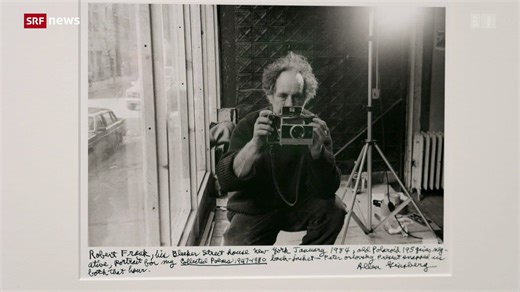 SRF news
Robert Frank, his Bleeker Street house New York January 1984, old Polaroid 195 gives neg-
ative, portrait for my Collected Poems 1947-1980 back-jacket — Peter Orlovsky present snapped us
both that hour. Allen Ginsberg